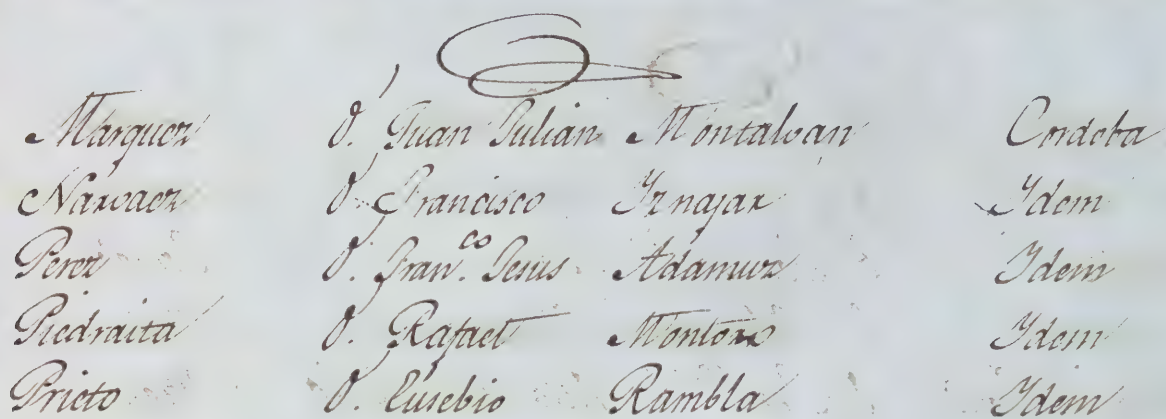 Marquez D. Juan Julian Montalvan Cordoba
Narvaez D. Francisco Iznajar Idem
Perez D. Fran.co Jesus Adamuz Idem
Piedraita D. Rafael Montoro Idem
Prieto D. Eusebio Rambla Idem